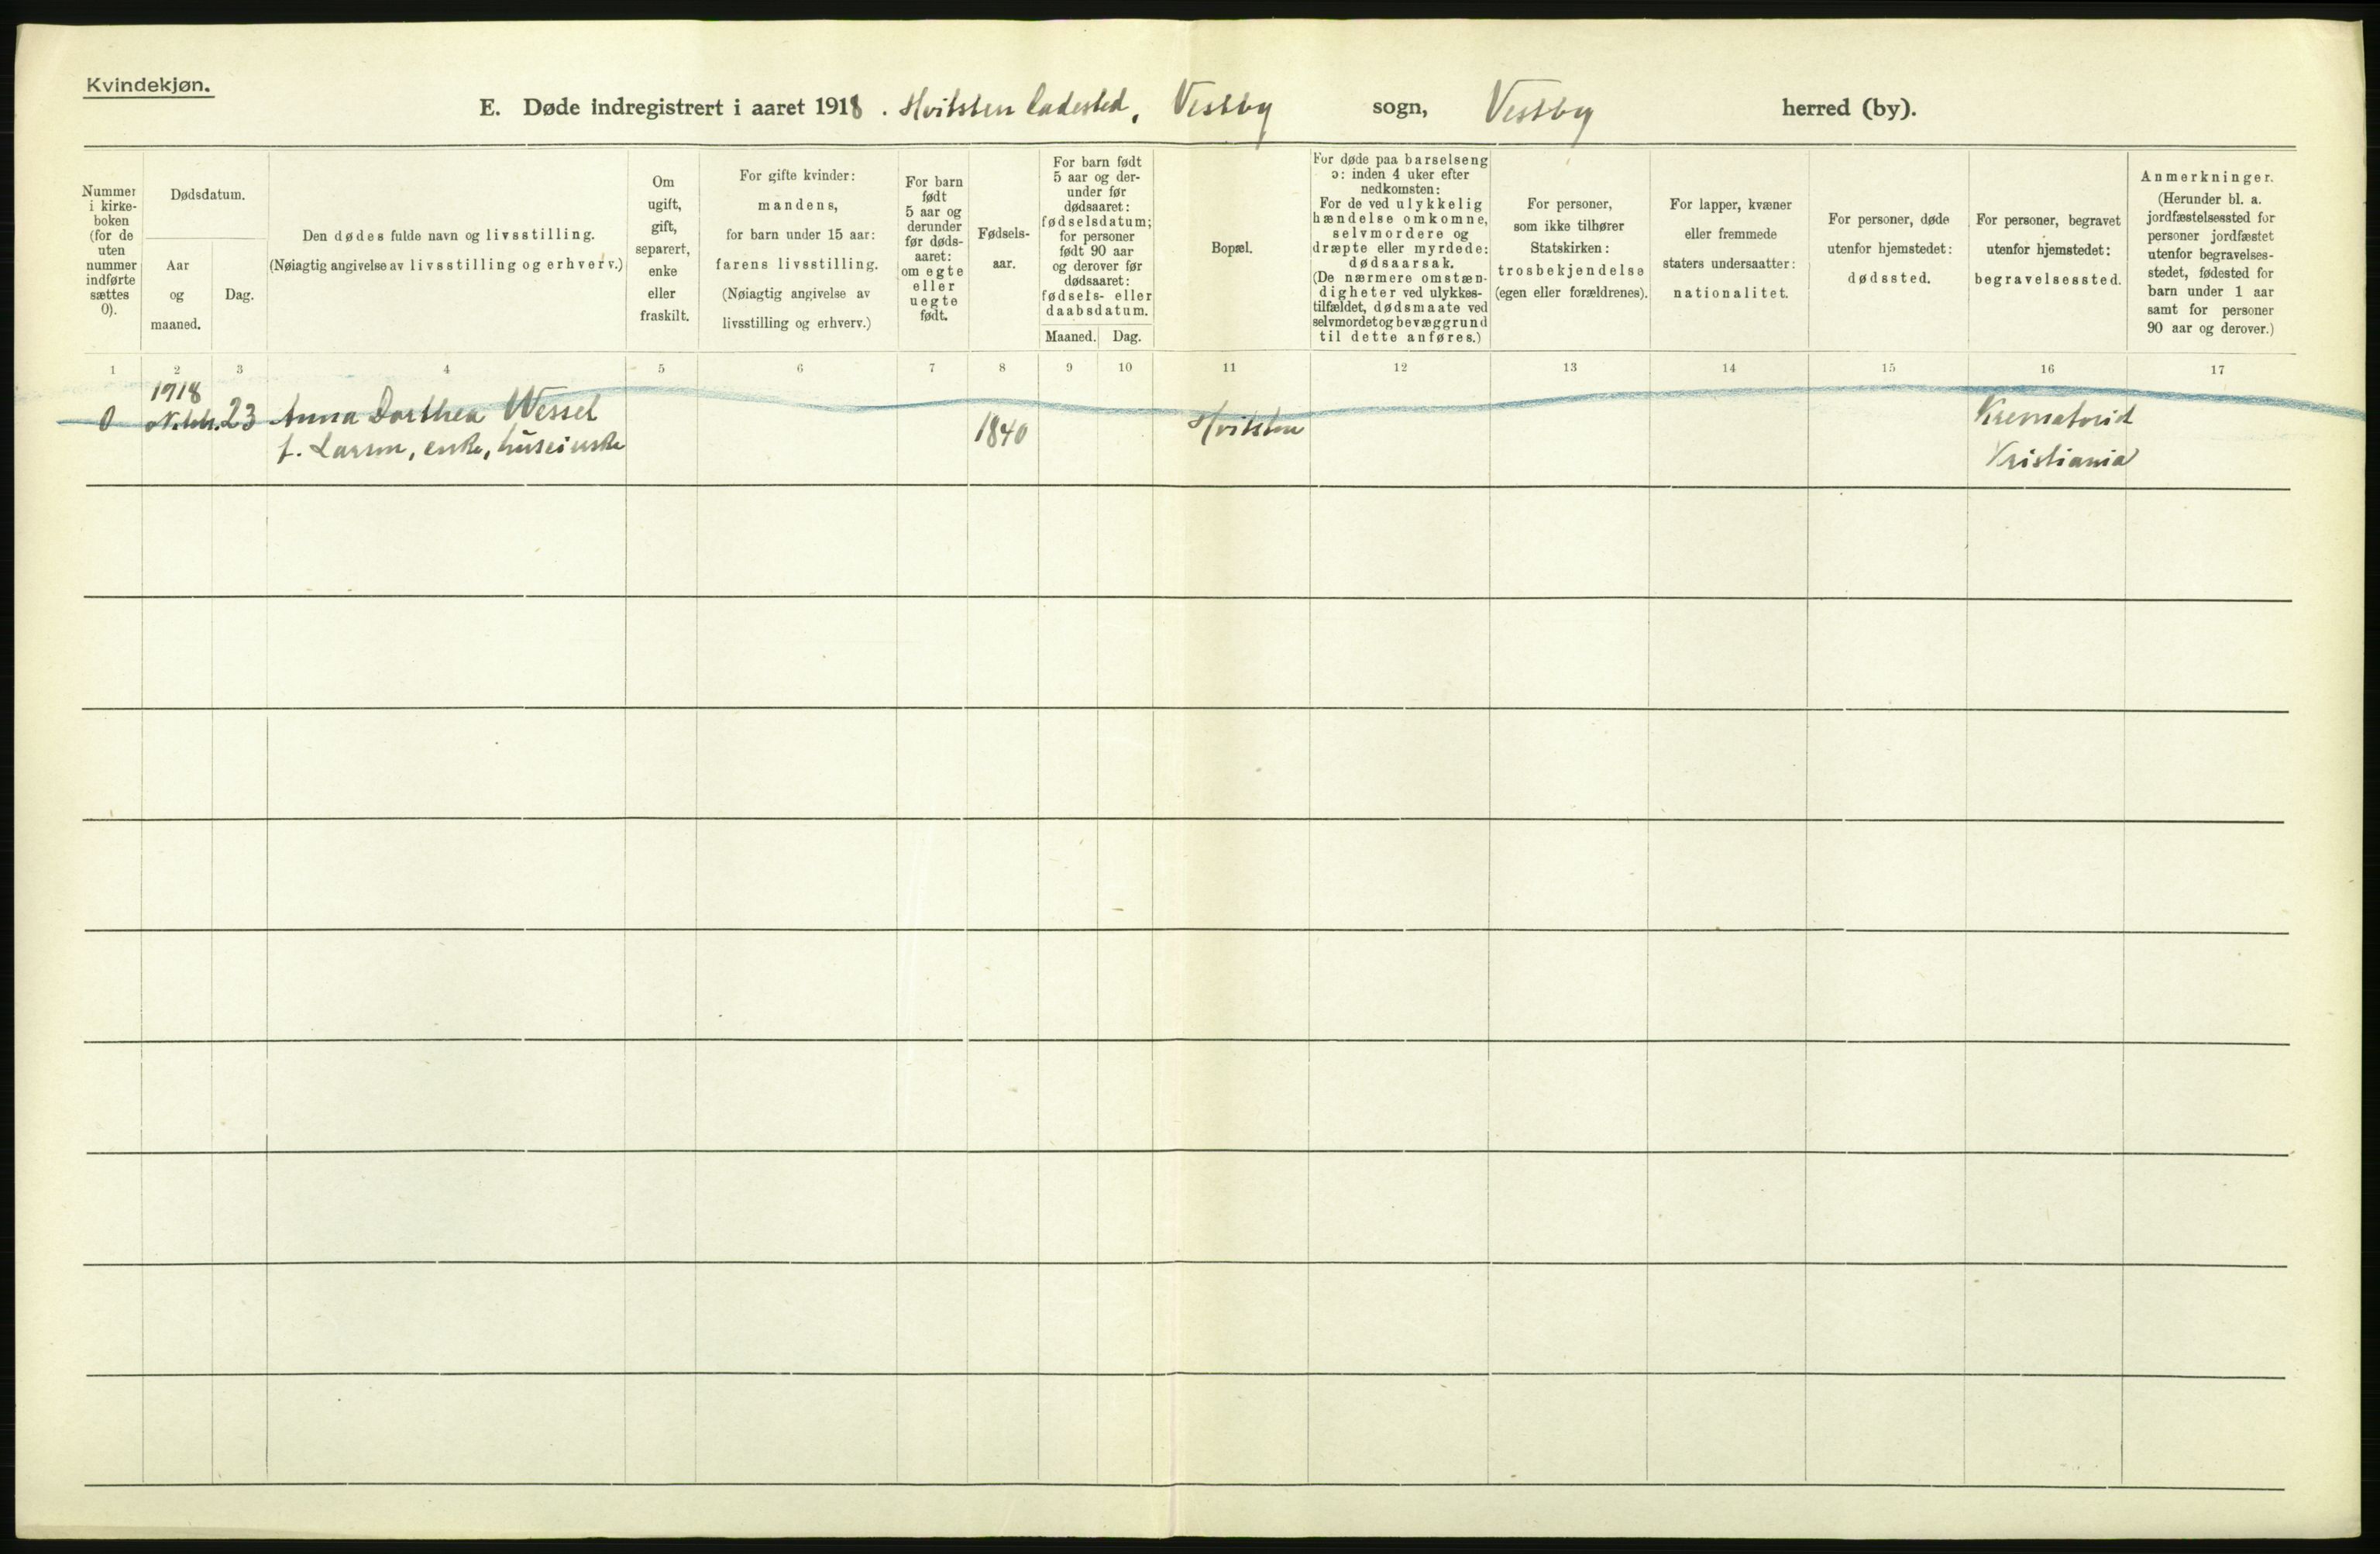 Kvindekjøn.
E. Døde indregistrert i aaret 1918. Hvitsten ladested, Vestby sogn, Vestby herred (by).
Nummer
i kirke-
boken
(for de
uten
nummer
indførte
sættes
0).
Dødsdatum.
Aar
og
maaned.
Dag.
Den dødes fulde navn og livsstilling.
(Nøiagtig angivelse av livsstilling og erhverv.)
Om
ugift,
gift,
separert,
enke
eller
fraskilt.
For gifte kvinder:
mandens,
for barn under 15 aar:
farens livsstilling.
(Nøiagtig angivelse av
livsstilling og erhverv.)
For barn
født
5 aar og
derunder
før døds-
aaret:
om egte
eller
uegte
født.
Fødsels-
aar.
For barn født
5 aar og der-
under før
dødsaaret:
fødselsdatum;
for personer
født 90 aar
og derover før
dødsaaret:
fødsels- eller
daabsdatum.
Maaned. Dag.
Bopæl.
For døde paa barselseng
ɔ: inden 4 uker efter
nedkomsten:
For de ved ulykkelig
hændelse omkomne,
selvmordere og
dræpte eller myrdede:
dødsaarsak.
(De nærmere omstæn-
digheter ved ulykkes-
tilfældet, dødsmaate ved
selvmordet og bevæggrund
til dette anføres.)
For personer,
som ikke tilhører
Statskirken:
trosbekjendelse
(egen eller forældrenes).
For lapper, kvæner
eller fremmede
staters undersaatter:
nationalitet.
For personer, døde
utenfor hjemstedet:
dødssted.
For personer, begravet
utenfor hjemstedet:
begravelsessted.
Anmerkninger.
(Herunder bl. a.
jordfæstelsessted for
personer jordfæstet
utenfor begravelses-
stedet, fødested for
barn under 1 aar
samt for personer
90 aar og derover.)
1 2 3 4 5 6 7 8 9 10 11 12 13 14 15 16 17
1918
0 23 Anna Dorthea Wessel 1840 Hvitsten Krematoriet
f. Larsen, enke, huseierske Kristiania